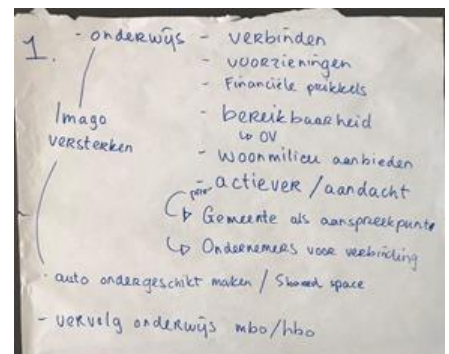 1. - onderwijs - verbinden
- voorzieningen
- Financiële prikkels
Imago versterken
- bereikbaarheid
↳ OV
- woonmilieu aanbieden
- actiever / aandacht
↳ Gemeente als aanspreekpunt
↳ Ondernemers voor verbinding
- auto ondergeschikt maken / Shared space
- vervolg onderwijs mbo/hbo